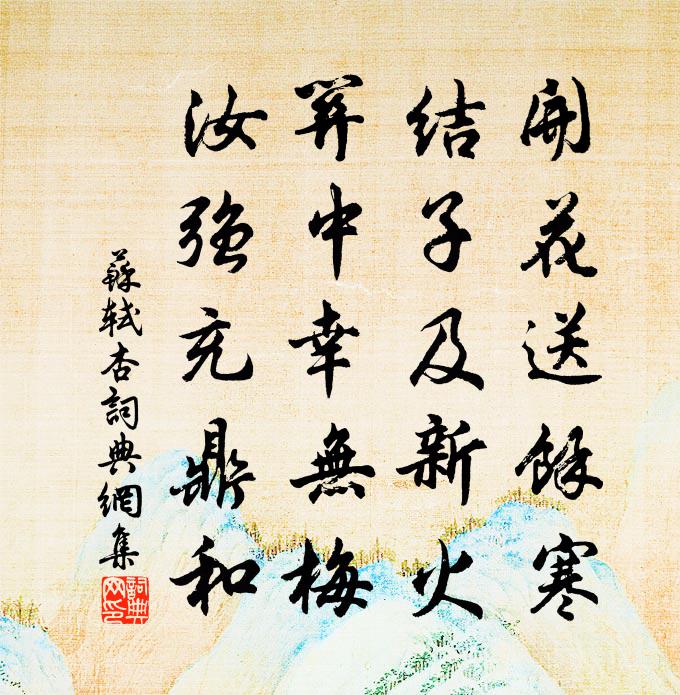 開花送餘寒
結子及新火
關中幸無梅
汝強充鼎和
蘇軾杏詞典網集
詞典網印